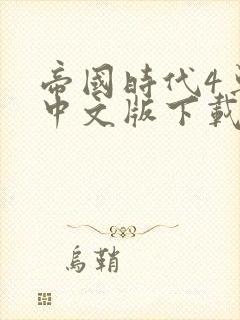 帝國時代4
中文版下載
烏鞘